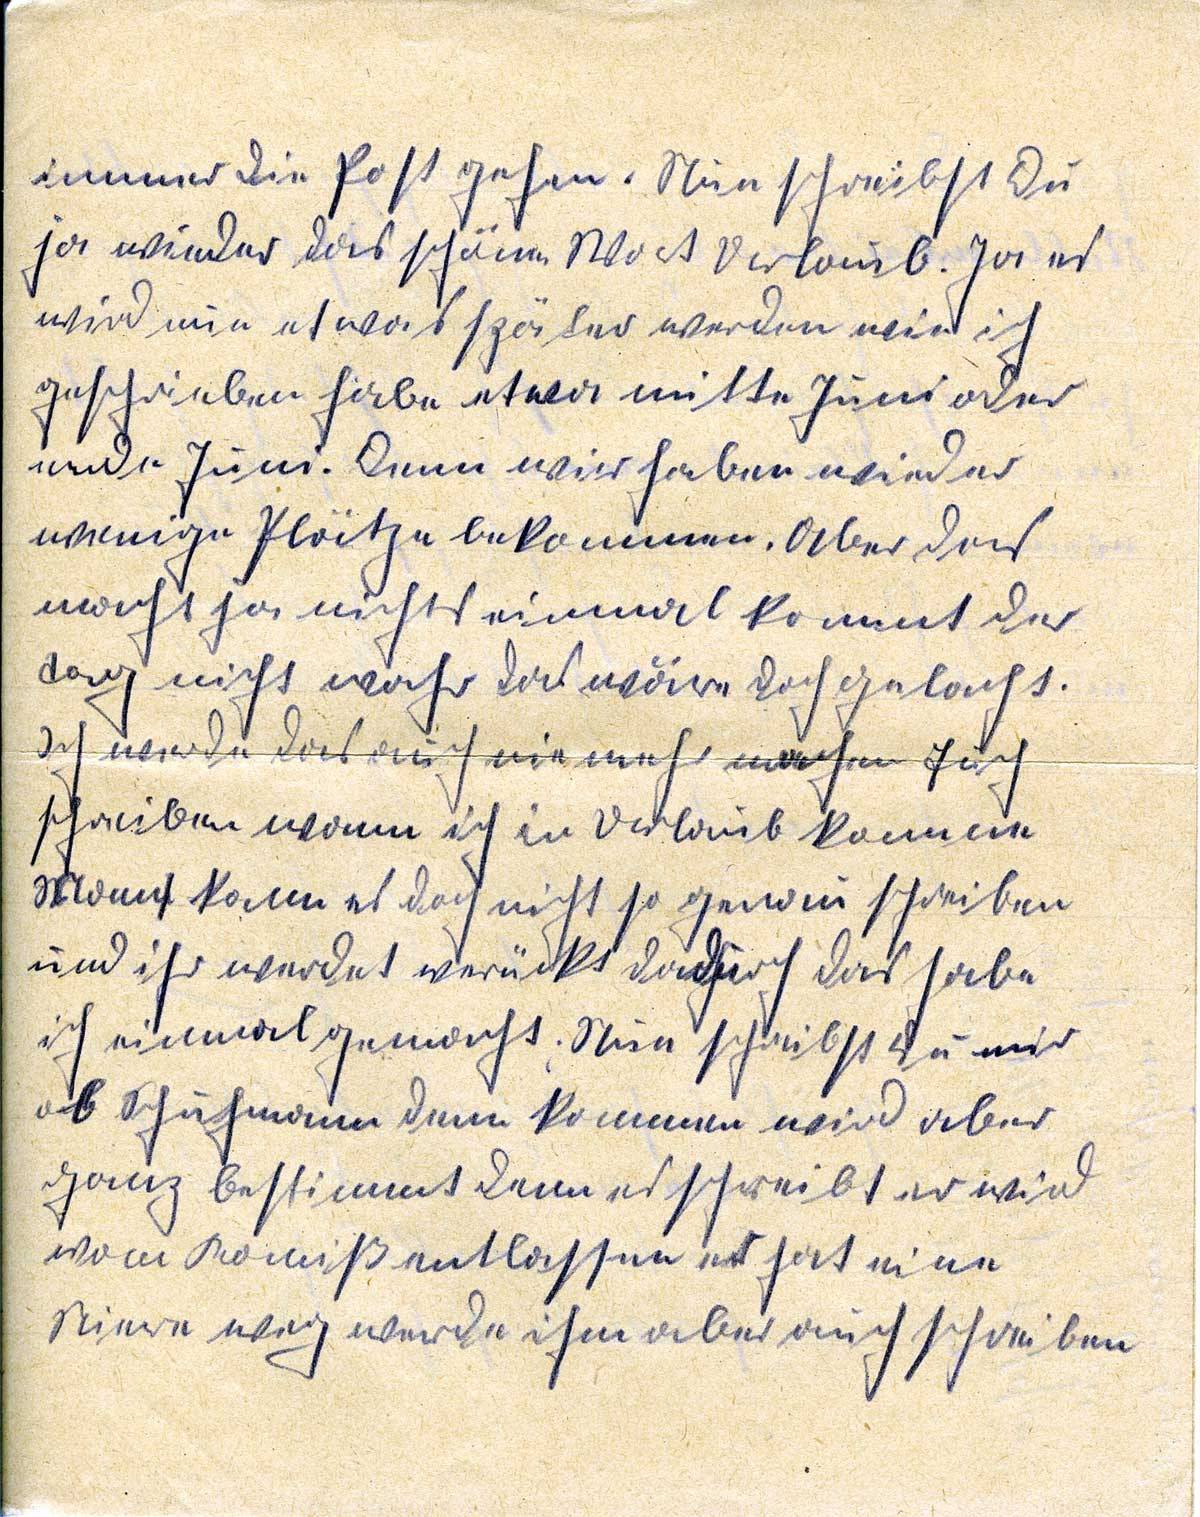 immer die Post gehen. Nun schreibst Du
ja wieder das schöne Wort Urlaub. Ja es
wird nun etwas später werden wie ich
geschrieben habe etwa mitte Juni oder
ende Juni. Denn wier haben wieder
wenige Plätze bekommen. Aber das
macht ja nichts einmal kommt der
tag nicht wahr das wäre doch gelacht.
Ich werde das auch nie mehr machen Euch
schreiben wann ich in Urlaub komme
Mann kann es doch nicht so genau schreiben
und ihr werdet verückt dadurch das habe
ich einmal gemacht. Nun schreibst Du mir
ob Schuhmann denn kommen wird aber
ganz bestimmt denn er schreibt er wird
vom Komiß entlassen er hat eine
Niere weg werde ihm aber auch schreiben